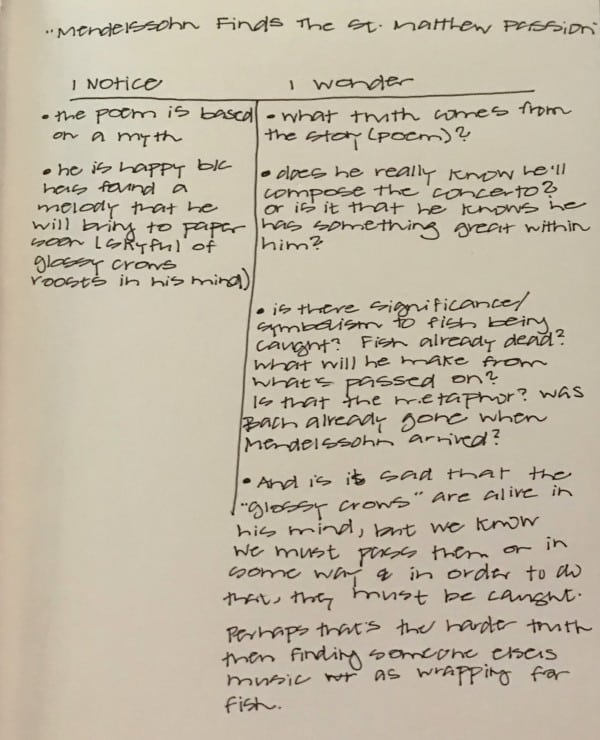 "Mendelssohn Finds The St. Matthew Passion"
I Notice
• the poem is based
on a myth
• he is happy b/c
he's found a
melody that he
will bring to paper
soon (skyful of
glossy crows
roosts in his mind)
I Wonder
• what truth comes from
the story (poem)?
• does he really know he'll
compose the concerto?
or is it that he knows he
has something great within
him?
• is there significance/
symbolism to fish being
caught? Fish already dead?
What will he make from
what's passed on?
Is that the metaphor? was
Bach already gone when
Mendelssohn arrived?
• And is it sad that the
"glossy crows" are alive in
his mind, but we know
we must pass them on in
some way & in order to do
that, they must be caught.
Perhaps that's the harder truth
then finding someone else's
music as wrapping for
fish.